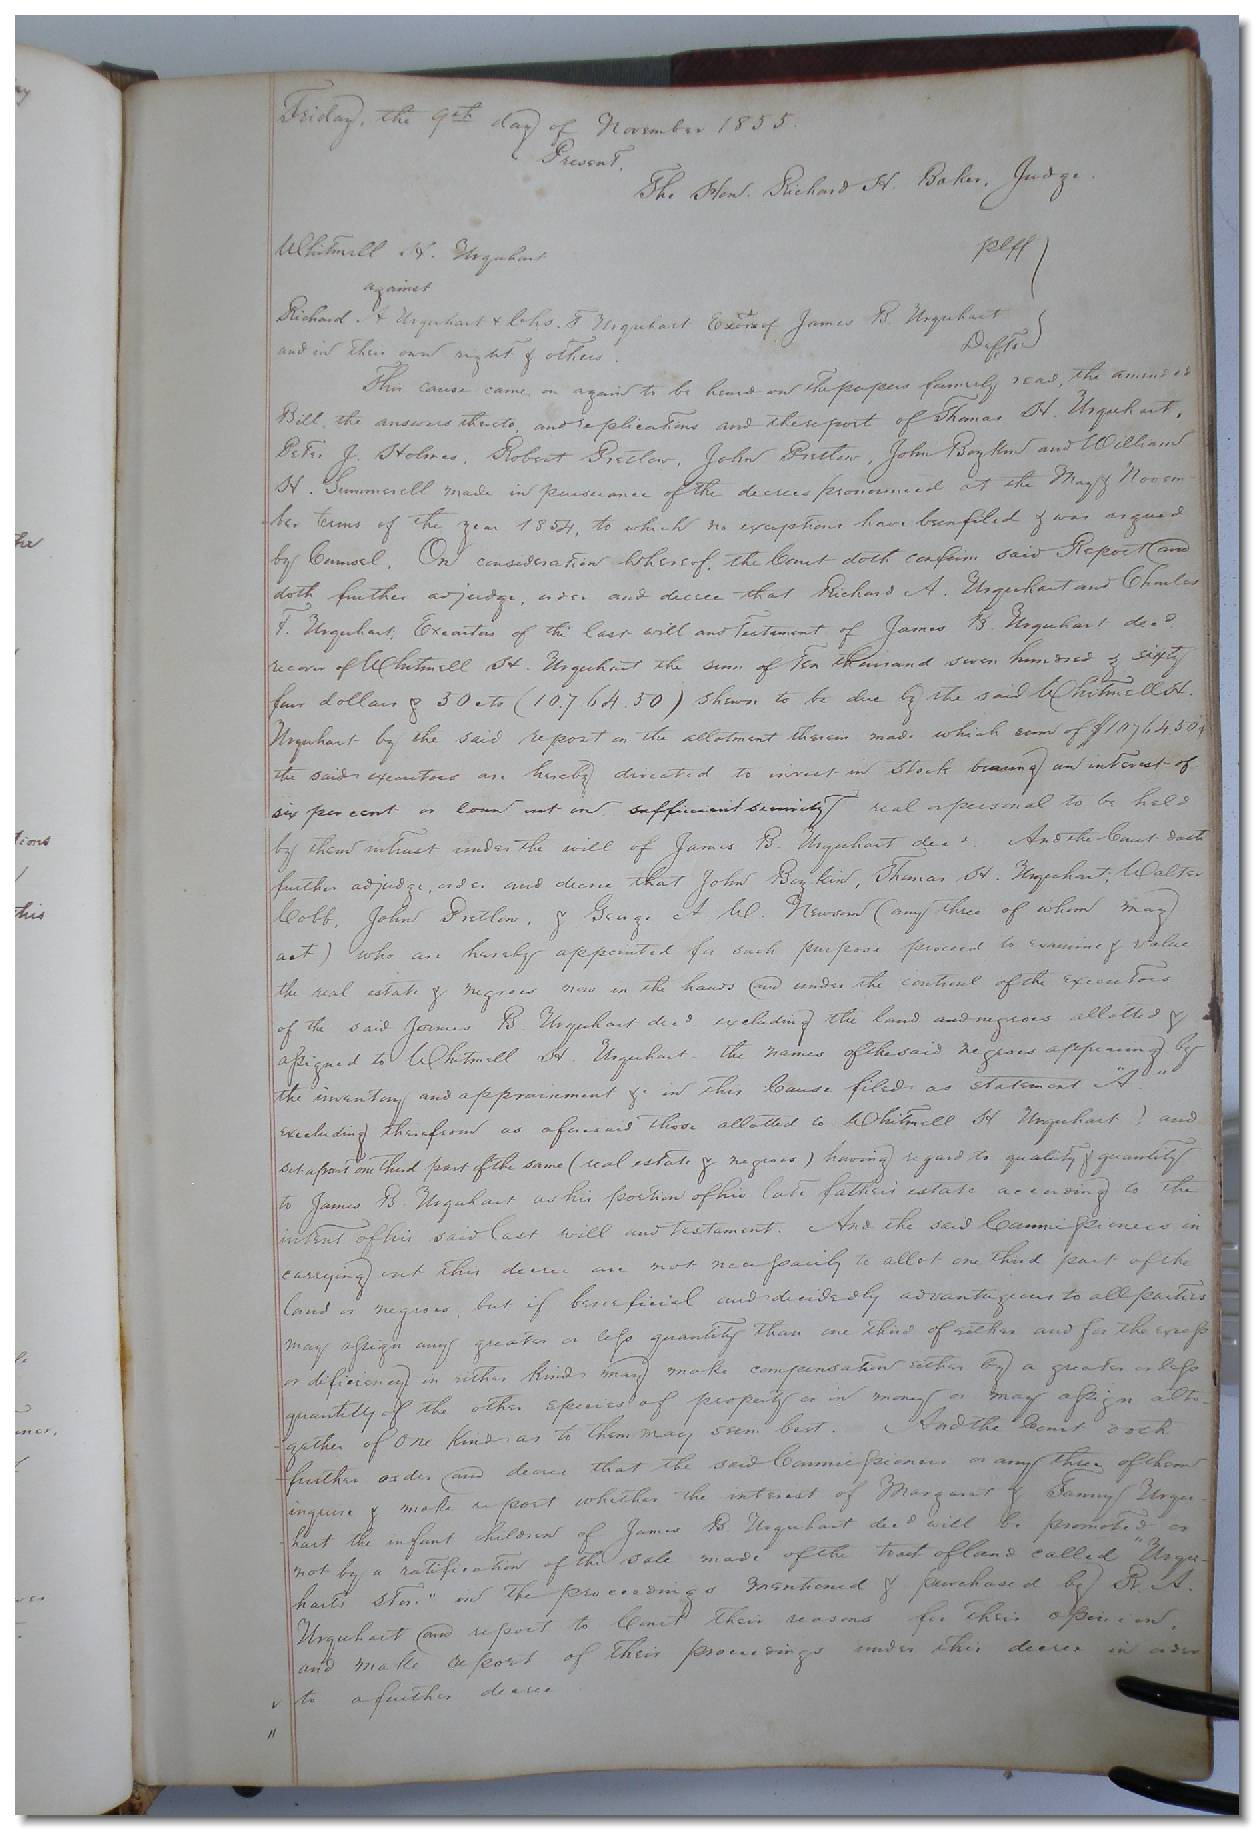 Friday, the 9th day of November 1855.
Present,
The Hon. Richard H. Baker, Judge.
Whitmell H. Urquhart plff
against
Richard A Urquhart & Chs. F Urquhart Exors of James B. Urquhart
and in their own right & others. Defts
This cause came on again to be heard on the papers formerly read, the amended
Bill, the answers thereto, and replications and the report of Thomas H. Urquhart,
Peter J. Holmes, Robert Pretlow, John Pretlow, John Boykin and William
H. Summerell made in pursuance of the decrees pronounced at the May & Novem-
ber terms of the year 1854, to which no exceptions have been filed & was argued
by Counsel. On consideration whereof, the Court doth confirm said Report and
doth further adjudge, order and decree that Richard A. Urquhart and Charles
F. Urquhart, Executors of the last will and testament of James B. Urquhart decd.
recover of Whitmell H. Urquhart the sum of Ten thousand seven hundred & sixty
four dollars & 50 cts (10.764.50) shewn to be due by the said Whitmell H.
Urquhart by the said report on the allotment therein made which sum of $10764.50
the said executors are hereby directed to invest in Stock bearing an interest of
six per cent or loan out on sufficient security real or personal to be held
by them in trust under the will of James B. Urquhart decd. And the Court doth
further adjudge, order and decree that John Boykin, Thomas H. Urquhart, Walter
Cobb, John Pretlow, & George A W. Newsom (any three of whom may
act) who are hereby appointed for such purpose proceed to examine & value
the real estate & negroes now in the hands and under the controul of the executors
of the said James B. Urquhart decd excluding the land and negroes allotted &
assigned to Whitmell H. Urquhart - the names of the said negroes appearing by
the inventory and appraisment &c in this Cause filed as statement "A."
excluding therefrom as aforesaid those allotted to Whitmell H Urquhart) and
set apart one third part of the same (real estate & negroes) having regard to quality & quantity
to James B. Urquhart as his portion of his late father's estate according to the
intent of his said last will and testament. And the said Commissioners in
carrying out this decree are not necessarily to allot one third part of the
land or negroes, but if beneficial and decidedly advantageous to all parties
may assign any greater or less quantity than one third of either and for the excess
or deficiency in either kind may make compensation either by a greater or less
quantity of the other species of property or in money or may assign alto-
gether of one kind as to them may seem best. And the Court doth
further order and decree that the said Commissioners or any three of them
inquire & make report whether the interest of Margaret & Fanny Urqu-
hart the infant children of James B Urquhart decd will be promoted or
not by a ratification of the sale made of the tract of land called "Urqu-
harts Store" in the proceedings mentioned & purchased by R. A.
Urquhart and report to Court their reasons for their opinion,
and make report of their proceedings under this decree in order
to a further decree